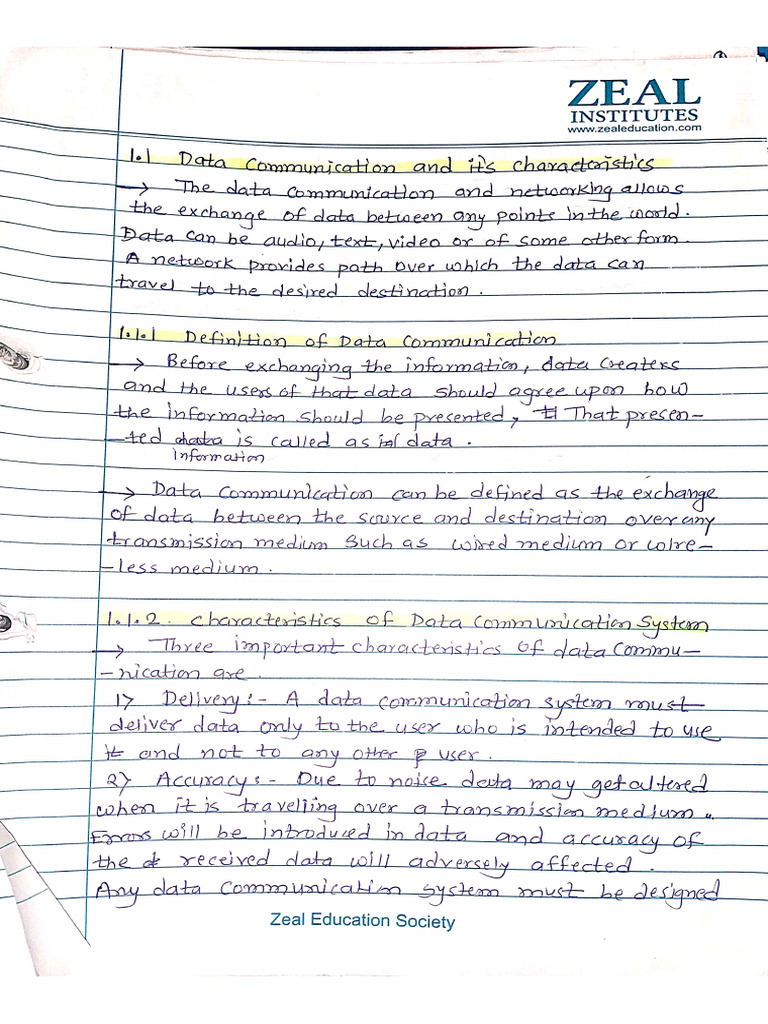 ZEAL
INSTITUTES
www.zealeducation.com
1.1 Data Communication and it's characteristics
→ The data communication and networking allows
the exchange of data between any points in the world.
Data can be audio, text, video or of some other form.
A network provides path over which the data can
travel to the desired destination.
1.1.1 Definition of Data Communication
→ Before exchanging the information, data creaters
and the users of that data should agree upon how
the information should be presented, That presen-
-ted data is called as data.
information
→ Data Communication can be defined as the exchange
of data between the source and destination over any
transmission medium such as wired medium or wire-
-less medium.
1.1.2. Characteristics of Data Communication System
→ Three important characteristics of data commu-
-nication are.
1) Delivery:- A data communication system must
deliver data only to the user who is intended to use
it and not to any other user.
2) Accuracy:- Due to noise data may get altered
when it is travelling over a transmission medium.
Errors will be introduced in data and accuracy of
the received data will adversely affected.
Any data communication system must be designed
Zeal Education Society